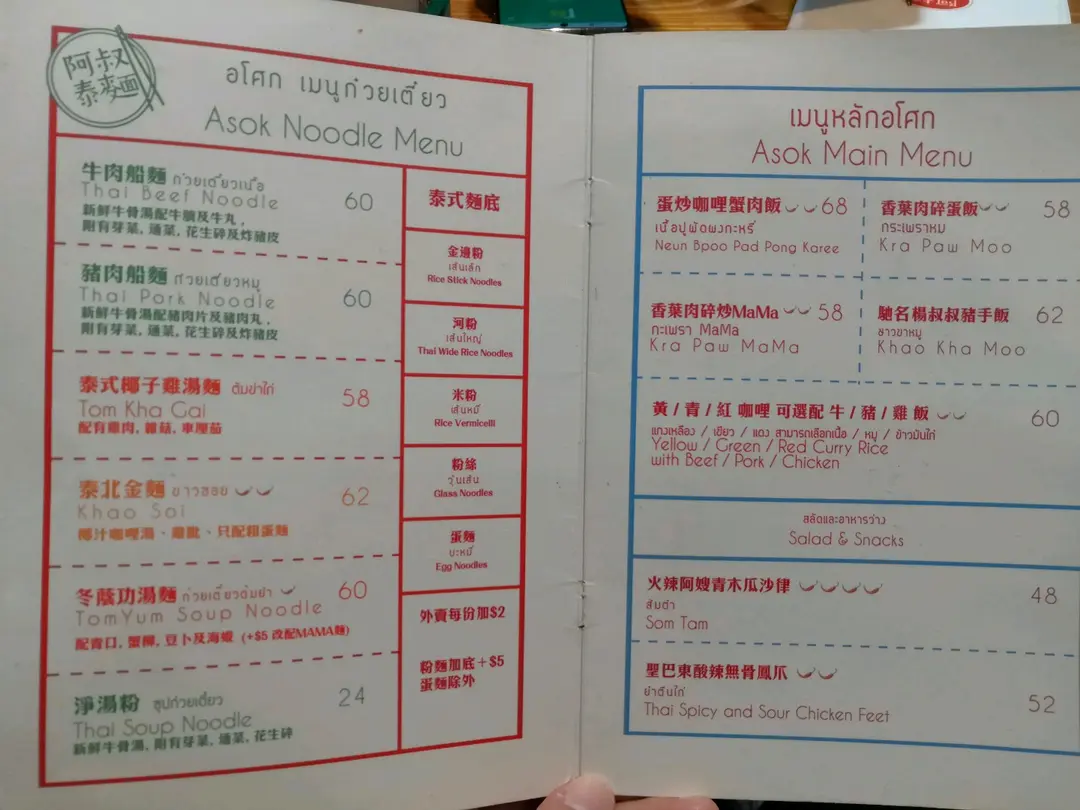 阿叔
泰麵
อโศก เมนูก๋วยเตี๋ยว
Asok Noodle Menu
牛肉船麵 ก๋วยเตี๋ยวเนื้อ 60
Thai Beef Noodle
新鮮牛骨湯配牛腩及牛丸，
附有芽菜, 通菜, 花生碎及炸豬皮
豬肉船麵 ก๋วยเตี๋ยวหมู 60
Thai Pork Noodle
新鮮牛骨湯配豬肉片及豬肉丸，
附有芽菜, 通菜, 花生碎及炸豬皮
泰式椰子雞湯麵 ต้มข่าไก่ 58
Tom Kha Gai
配有雞肉, 雜菇, 車厘茄
泰北金麵 ขาวซอย 62
Khao Soi
椰汁咖哩湯、雞髀、只配粗蛋麵
冬蔭功湯麵 ก๋วยเตี๋ยวต้มยำ 60
TomYum Soup Noodle
配青口, 蟹柳, 豆卜及海蝦 (+$5 改配MAMA麵)
淨湯粉 ซุปก๋วยเตี๋ยว 24
Thai Soup Noodle
新鮮牛骨湯, 附有芽菜, 通菜, 花生碎
泰式麵底
金邊粉
เส้นเล็ก
Rice Stick Noodles
河粉
เส้นใหญ่
Thai Wide Rice Noodles
米粉
เส้นหมี่
Rice Vermicelli
粉絲
วุ้นเส้น
Glass Noodles
蛋麵
บะหมี่
Egg Noodles
外賣每份加$2
粉麵加底+$5
蛋麵除外
เมนูหลักอโศก
Asok Main Menu
蛋炒咖哩蟹肉飯 68
เนื้อปูผัดผงกะหรี่
Neun Bpoo Pad Pong Karee
香葉肉碎蛋飯 58
กระเพราหม
Kra Paw Moo
香葉肉碎炒MaMa 58
กะเพรา MaMa
Kra Paw MaMa
馳名楊叔叔豬手飯 62
ขาวขาหมู
Khao Kha Moo
黃 / 青 / 紅 咖哩 可選配 牛 / 豬 / 雞 飯 60
แกงเหลือง / เขียว / แดง สามารถเลือกเนื้อ / หมู / ข้าวมันไก่
Yellow / Green / Red Curry Rice
with Beef / Pork / Chicken
สลัดและอาหารว่าง
Salad & Snacks
火辣阿嫂青木瓜沙律 48
ส้มตำ
Som Tam
聖巴東酸辣無骨鳳爪 52
ยำตีนไก่
Thai Spicy and Sour Chicken Feet